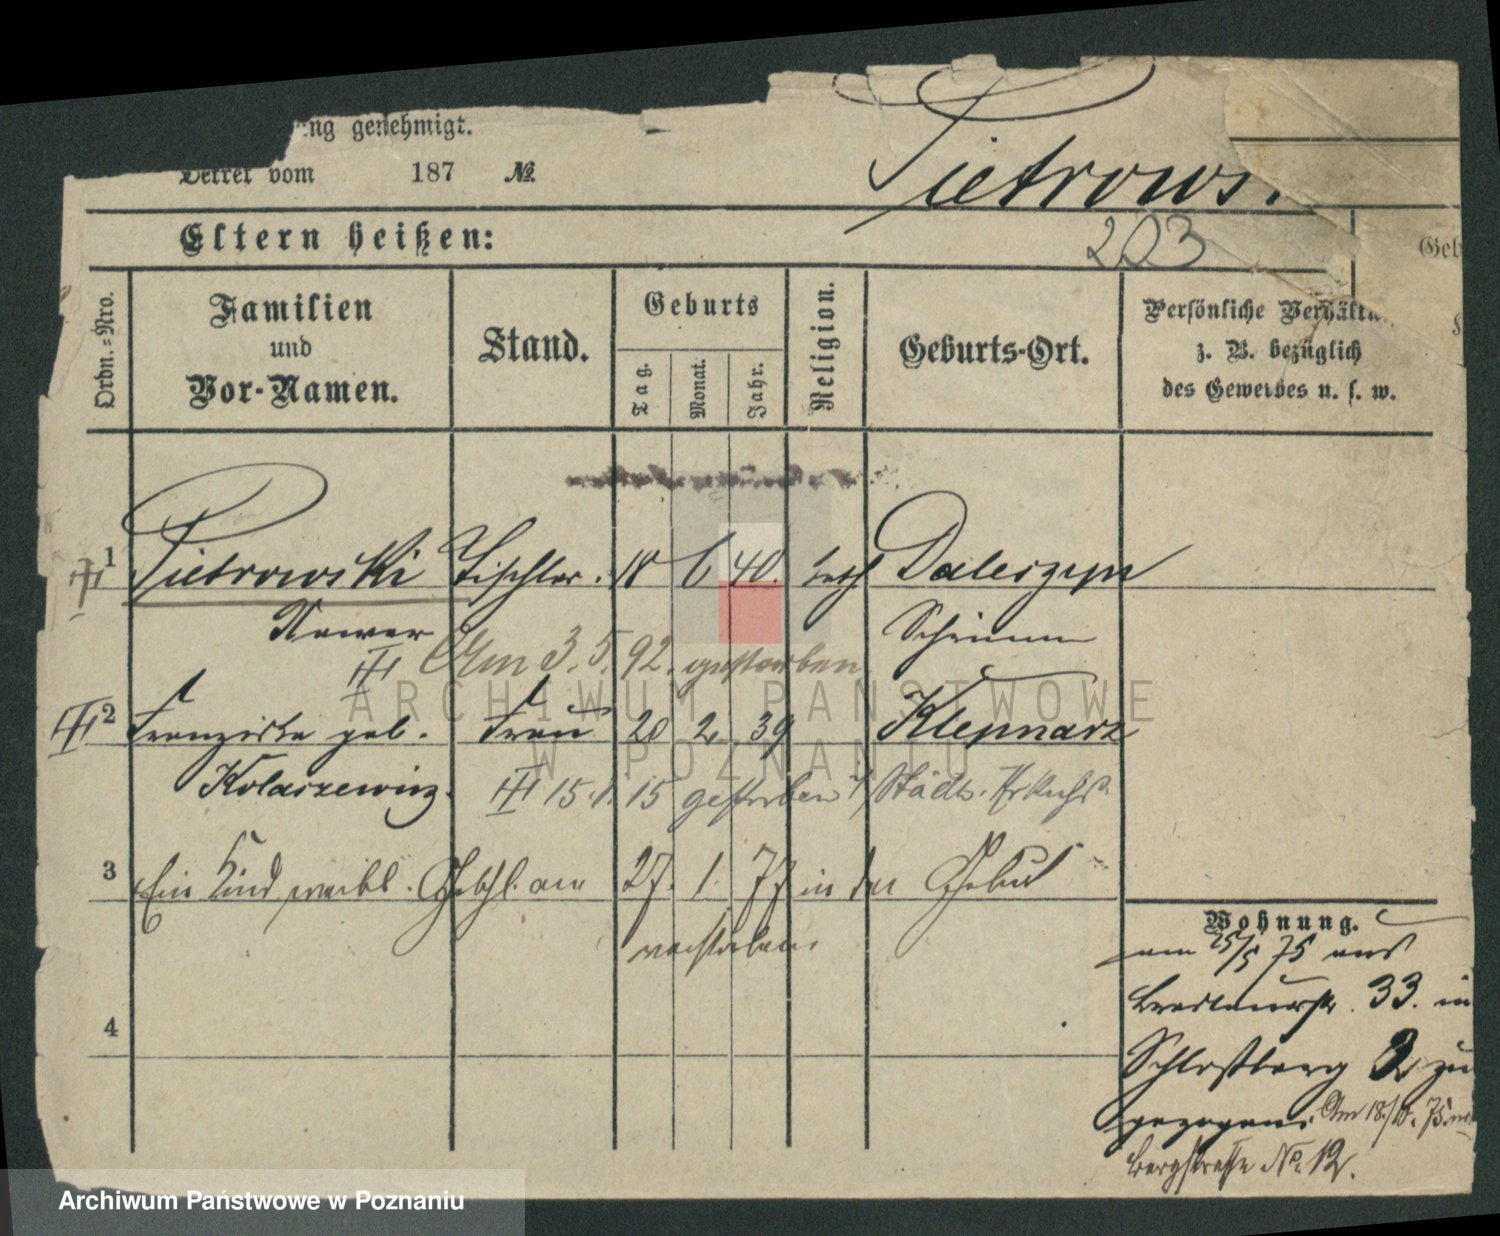 ng genehmigt.
Dekret vom 187 №
Pietrows
Eltern heißen:
203
Geb
Ordn.=Nro.
Familien
und
Vor-Namen.
Stand.
Geburts
Tag.
Monat.
Jahr.
Religion.
Geburts-Ort.
Persönliche Verhält
z. B. bezüglich
des Gewerbes u. s. w.
1 Pietrowski Tischler. 18 6 40. kath Daleszyn
Xawer Schrimm
Am 3. 5. 92. gestorben
2 Franziska geb. Frau 20 2 39
Kolaszewicz. 15. 1. 15 gestorben Städt.
3 Ein Kind weibl. Geschl. am 27. 1. 77 in der Geburt
verstorben
4
Wohnung.
am 25/5 75 aus
Breslauerstr. 33. in
Schloßberg 2 zu
gezogen. Am 18./10. 75.
Bergstrasse No. 12.
ARCHIWUM PAŃSTWOWE
W POZNANIU
Archiwum Państwowe w Poznaniu